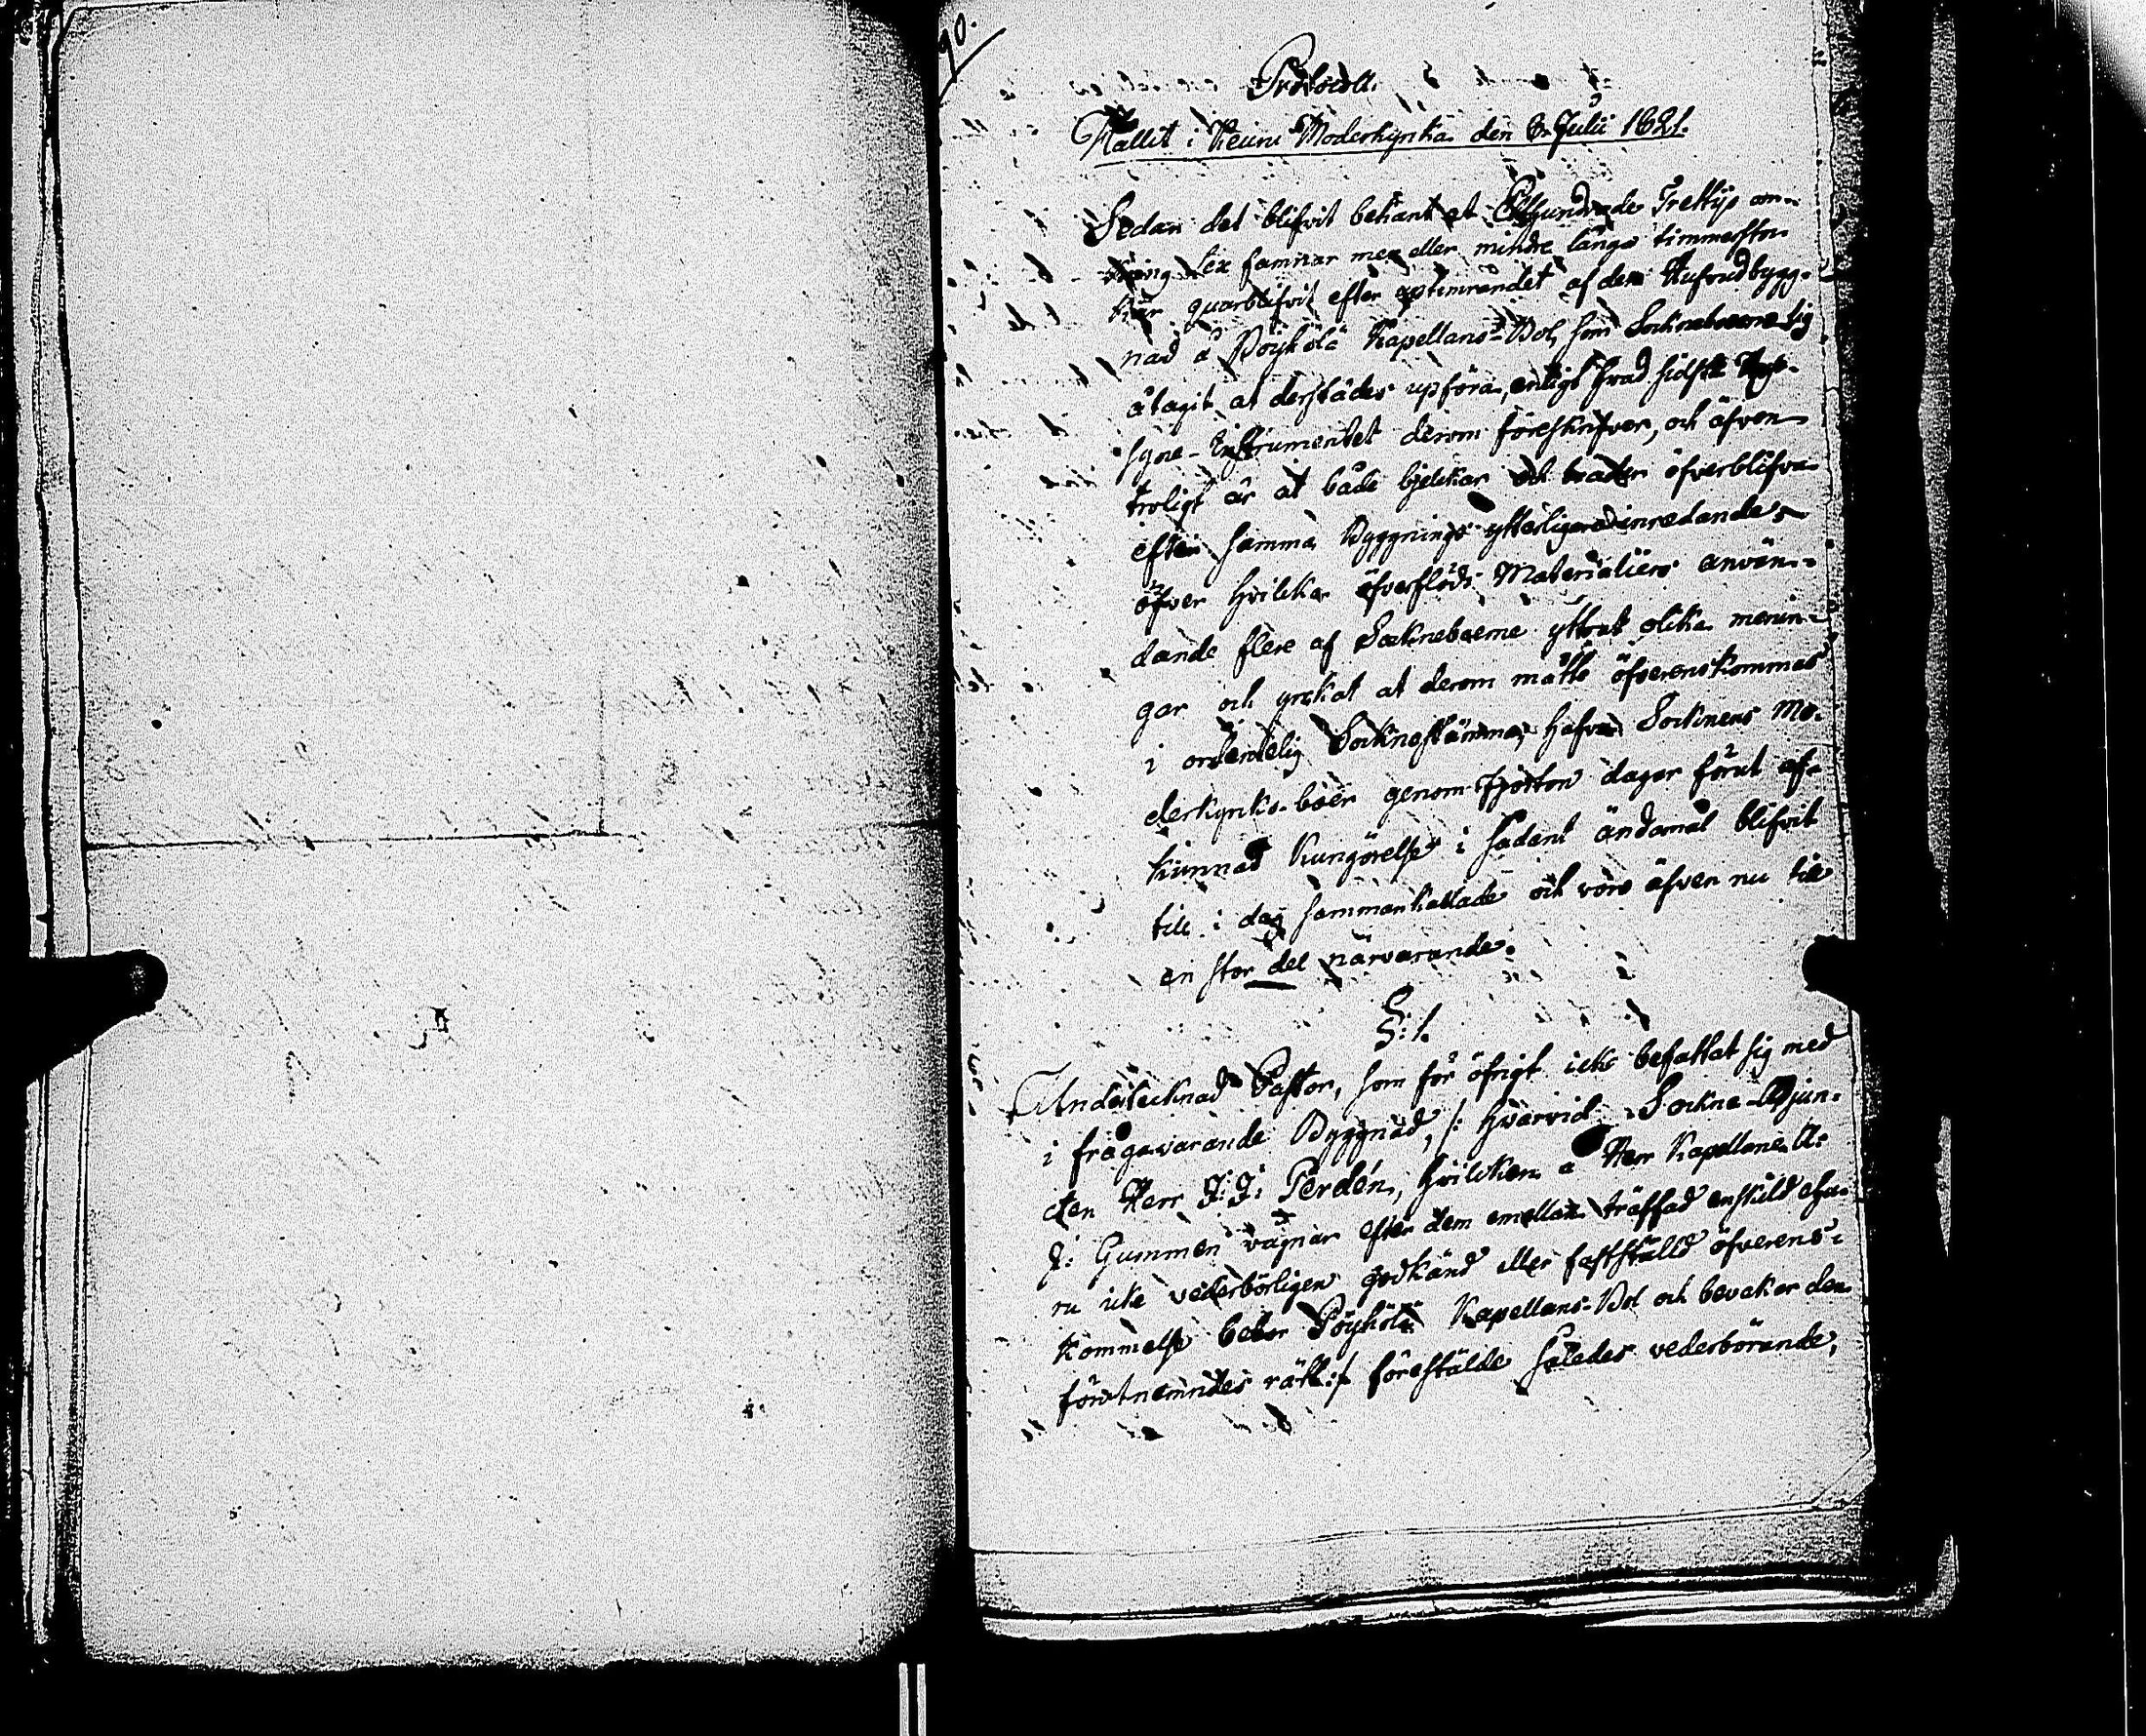 90.
Protocoll,
Hållit i Keuru Moderkyrka den 8 Julii 1821.
Sedan det blifvit bekant at Etthundrade Trettijo om-
kring Sex famnar mer eller mindre långa timmerstoc-
kar quarblifvit efter optimrandet af den Hufvudbygg-
nad å Pöyhölä Kapellans-Bol, som Sockneboerne sig
åtagit at derstädes upföra, enligt hvad sidste
syne-Instrumentet derom föreskrifver, och äfven
troligt är at både bjelckar och bräder öfverblifva
efter samma Byggnings ytterligare inredande,
öfver hvilcka öfverflöds Materialiers använ-
dande flere af Sockneboerne yttrat olika menin-
gar och yrckat at derom måtte öfverenskommas
i ordentelig Socknestämma, hafva Socknens Mo-
derkyrko-boer genom fjorton dagar förut af-
kunnad Kungörelse i sådant ändamål blifvit
till i dag sammankallade och voro äfven nu till
en stor del närvarande.
§: 1.
Undertecknad Pastor, som för öfrigt icke befattat sig med
i frågavarande Byggnad, /: hvarvid Sockne-Adjunc-
ten Herr J: J: Perdén, hvilcken å Herr Kapellanen A:
J: Gummeri vägnar efter dem emellan träffad enskild ehu-
ru icke vederbörligen godkänd eller fastställd öfverens-
kommelse bebor Pöyhölä Kapellans-Bol och bevakar den
förutnemndes rätt :/ förestälde således vederbörande,